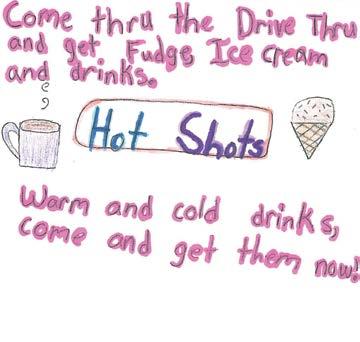 Come thru the Drive Thru
and get Fudge Ice cream
and drinks.
Hot Shots
Warm and cold drinks,
come and get them now!